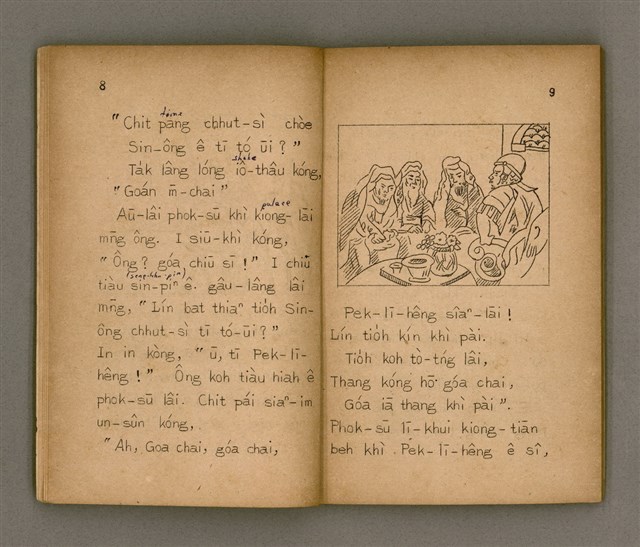 8
time
"Chit pāng chhut-sì chòe
Sin-ông ê tī tó ūi?"
shake
Ta̍k lâng lóng iô-thâu kóng,
"Goán m̄-chai"
palace
Aū-lâi phok-sū khì kiong-lāi
mn̄g ông. I siū-khì kóng,
"Ông? góa chiū sī!" I chiū
tiàu sin-piⁿ ê gâu-lâng lâi
mn̄g, "Lín bat thiaⁿ tio̍h Sin-
ông chhut-sì tī tó-ūi?"
In in kòng, "ū, tī Pek-lī-
hêng!" Ông koh tiàu hiah ê
phok-sū lâi. Chit pái siaⁿ-im
un-sûn kóng,
"Ah, Goa chai, góa chai,
9
Pek-lī-hêng sîaⁿ-lāi!
Lín tio̍h kín khì pài.
Tio̍h koh tò-tńg lâi,
Thang kóng hō͘ góa chai,
Góa iā thang khì pài".
Phok-sū lī-khui kiong-tiān
beh khì Pek-lī-hêng ê sî,